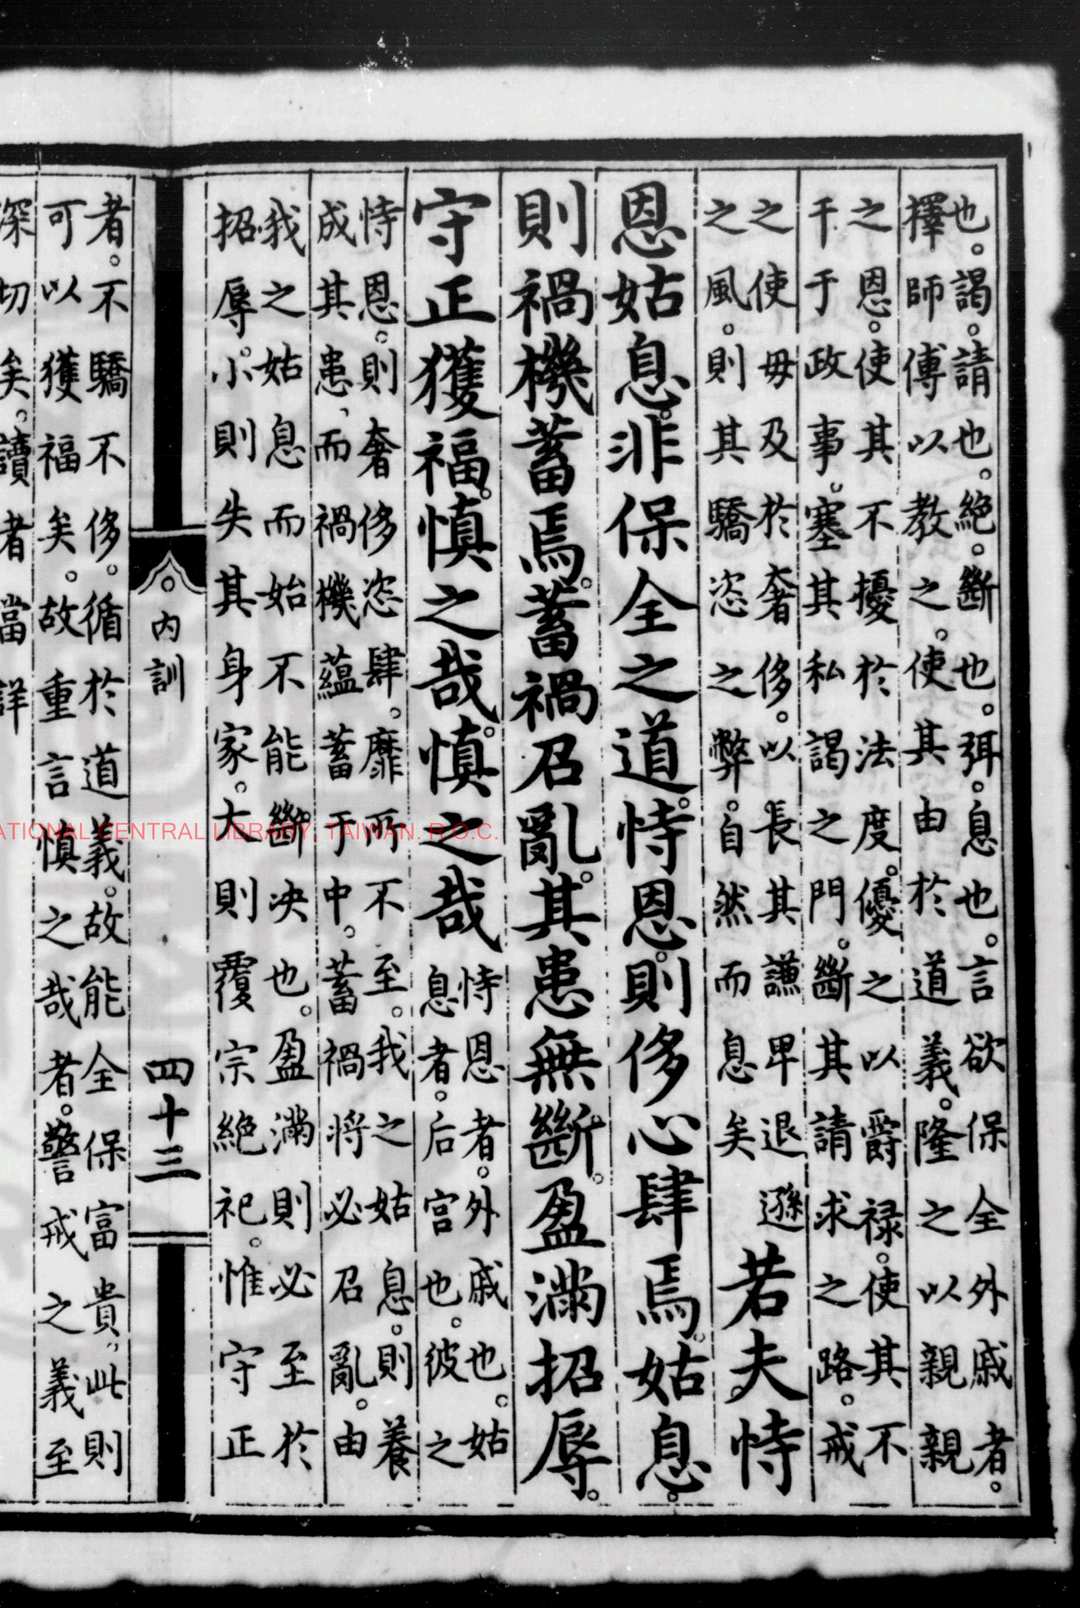 也。謁。請也。絕。斷也。弭。息也。言欲保全外戚者。
擇師傅以教之。使其由於道義。隆之以親親
之恩。使其不擾於法度。優之以爵祿。使其不
干于政事。塞其私謁之門。斷其請求之路。戒
之使毋及於奢侈。以長其謙卑退遜
之風。則其驕恣之弊。自然而息矣
若夫恃
恩姑息。非保全之道。恃恩則侈心肆焉。姑息。
則禍機蓄焉。蓄禍召亂。其患無斷。盈滿招辱。
守正獲福。慎之哉。慎之哉
恃恩者。外戚也。姑
息者。后宮也。彼之
恃恩。則奢侈恣肆。靡所不至。我之姑息。則養
成其患、而禍機蘊蓄于中。蓄禍將必召亂。由
我之姑息而始不能斷决也。盈滿則必至於
招辱。小則失其身家。大則覆宗絕祀。惟守正
內訓
四十三
者。不驕不侈。循於道義。故能全保富貴。此則
可以獲福矣。故重言慎之哉者。警戒之義至
深切矣。讀者當詳
NATIONAL CENTRAL LIBRARY, TAIWAN, R.O.C.